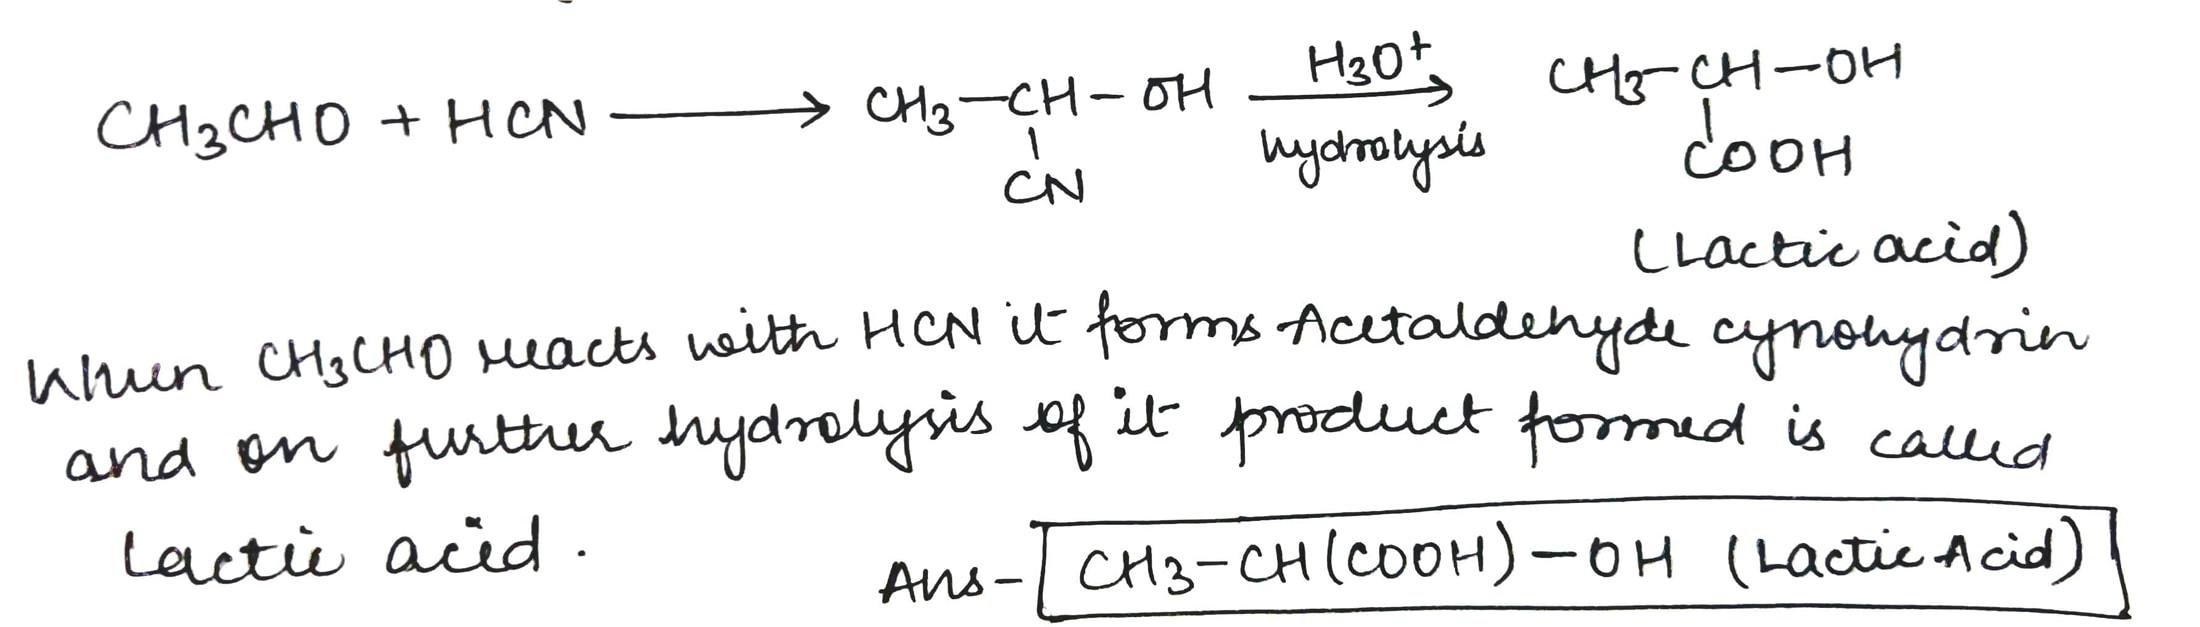 CH3CHO + HCN ⟶ CH3-CH-OH H3O+ ⟶ CH3-CH-OH
| hydrolysis |
CN COOH
(Lactic acid)
When CH3CHO reacts with HCN it forms Acetaldehyde cynohydrin
and on further hydrolysis of it product formed is called
Lactic acid.
Ans- CH3-CH(COOH)-OH (Lactic Acid)